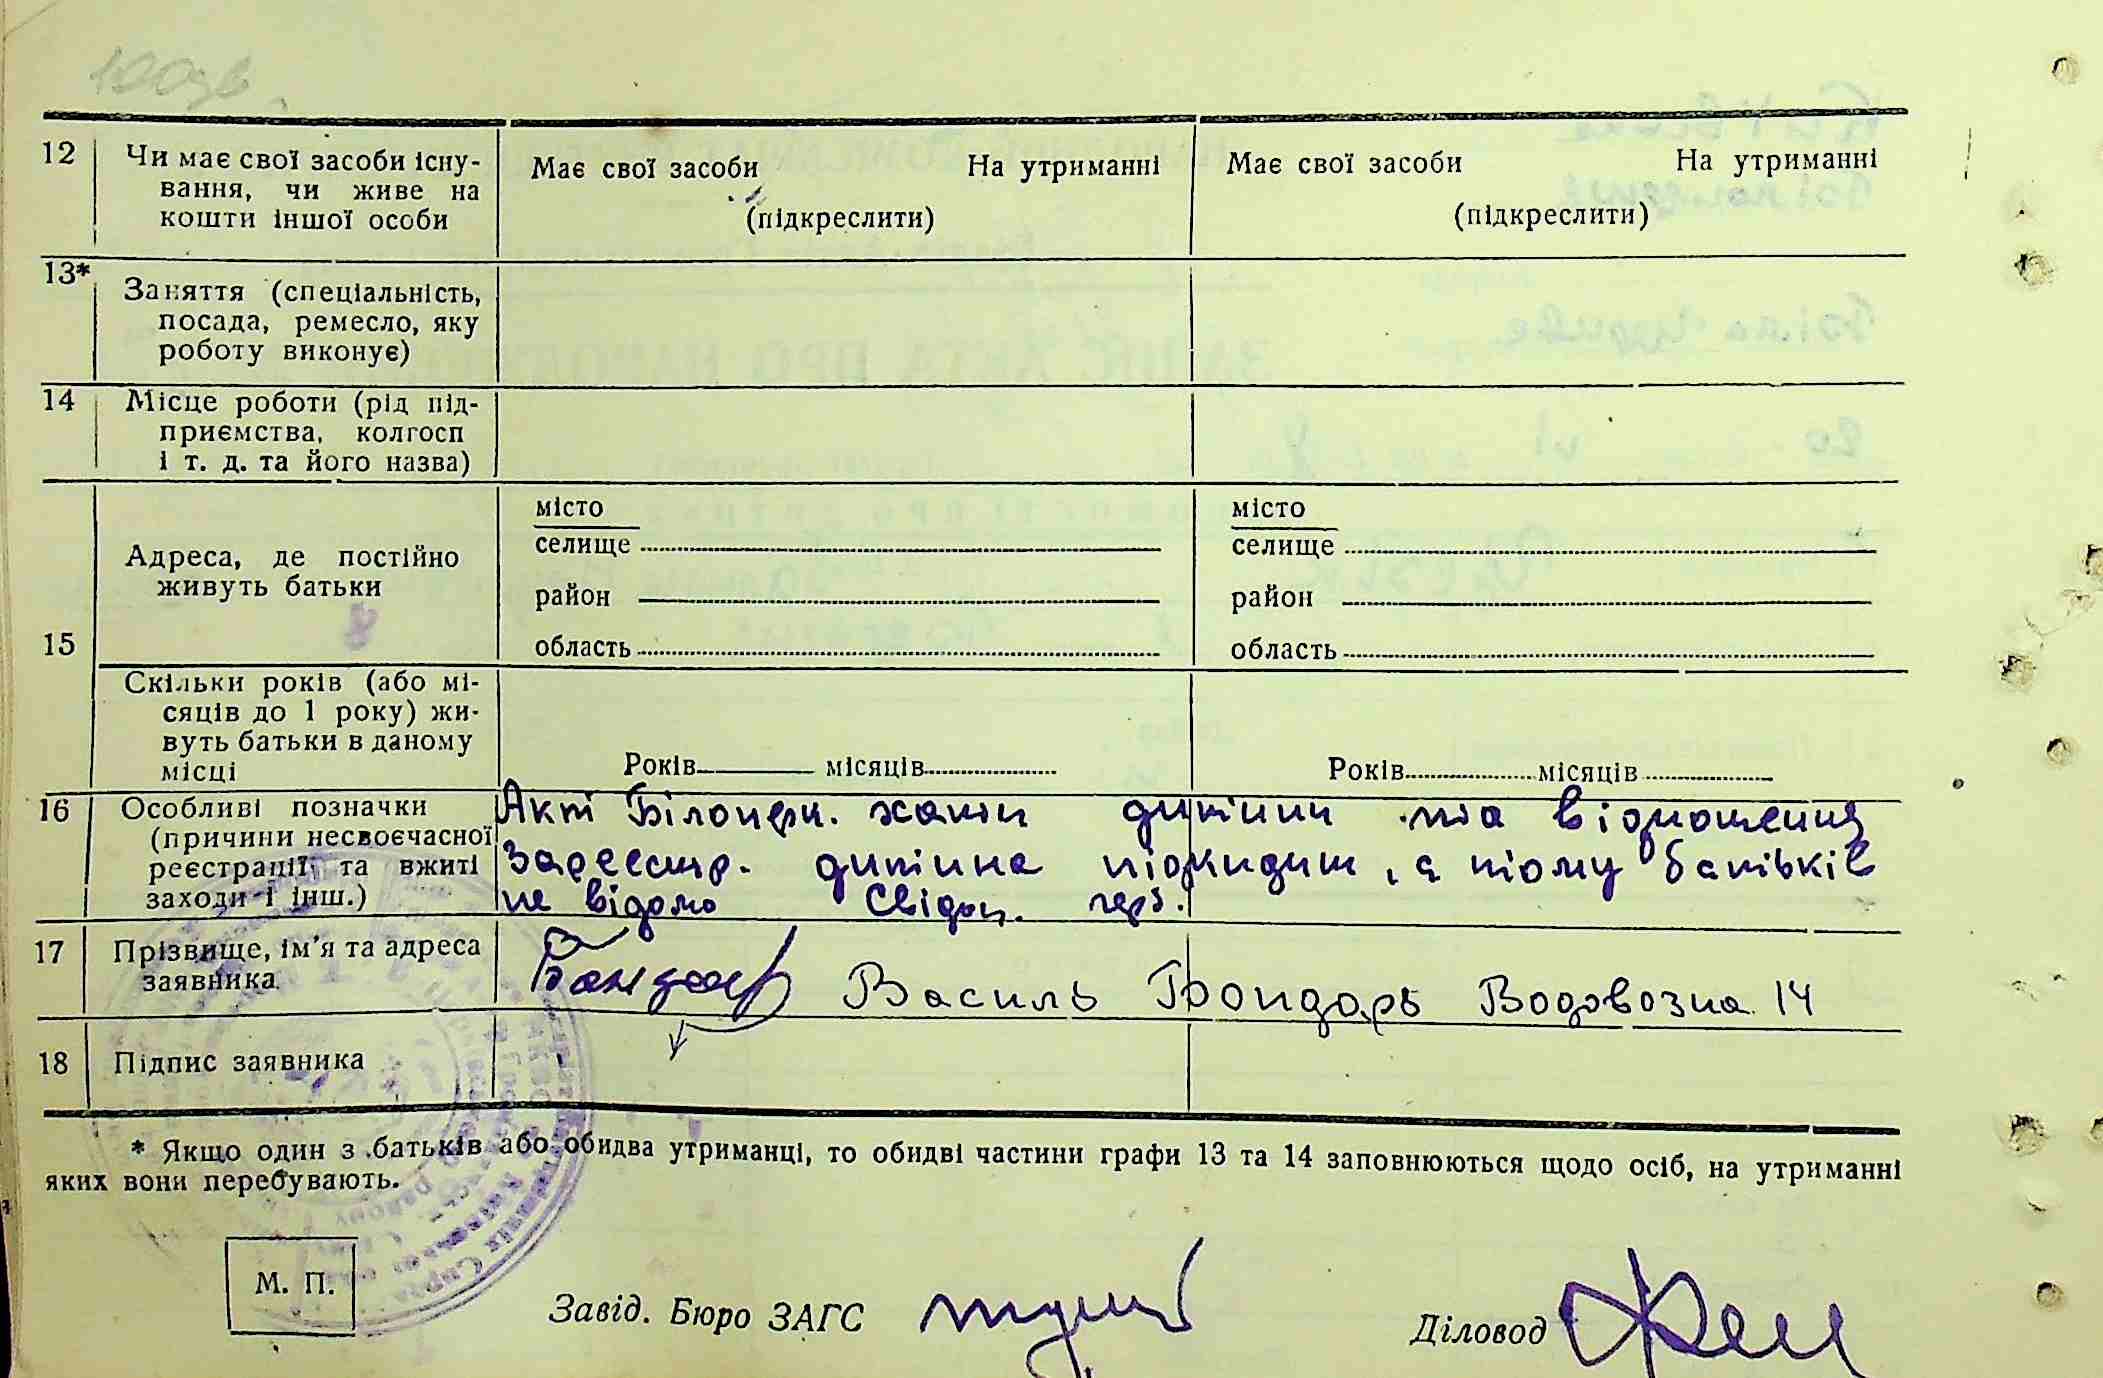 12 Чи має свої засоби існу-
вання, чи живе на
кошти іншої особи
Має свої засоби На утриманні
(підкреслити)
Має свої засоби На утриманні
(підкреслити)
13* Заняття (спеціальність,
посада, ремесло, яку
роботу виконує)
14 Місце роботи (рід під-
приємства, колгосп
і т. д. та його назва)
15
Адреса, де постійно
живуть батьки
місто
селище
район
область
місто
селище
район
область
Скільки років (або мі-
сяців до 1 року) жи-
вуть батьки в даному
місці
Років місяців
Років місяців
16 Особливі позначки
(причини несвоєчасної
реєстрації та вжиті
заходи і інш.)
Акт Білоцерк. хати дитини та відношення
зареєстр. дитина підкидиш, а тому батьків
не відомо Свідоц.
17 Прізвище, ім'я та адреса
заявника
Бондар Василь Бондарь Водовозна 14
18 Підпис заявника
* Якщо один з батьків або обидва утриманці, то обидві частини графи 13 та 14 заповнюються щодо осіб, на утриманні
яких вони перебувають.
М. П.
Завід. Бюро ЗАГС
Діловод